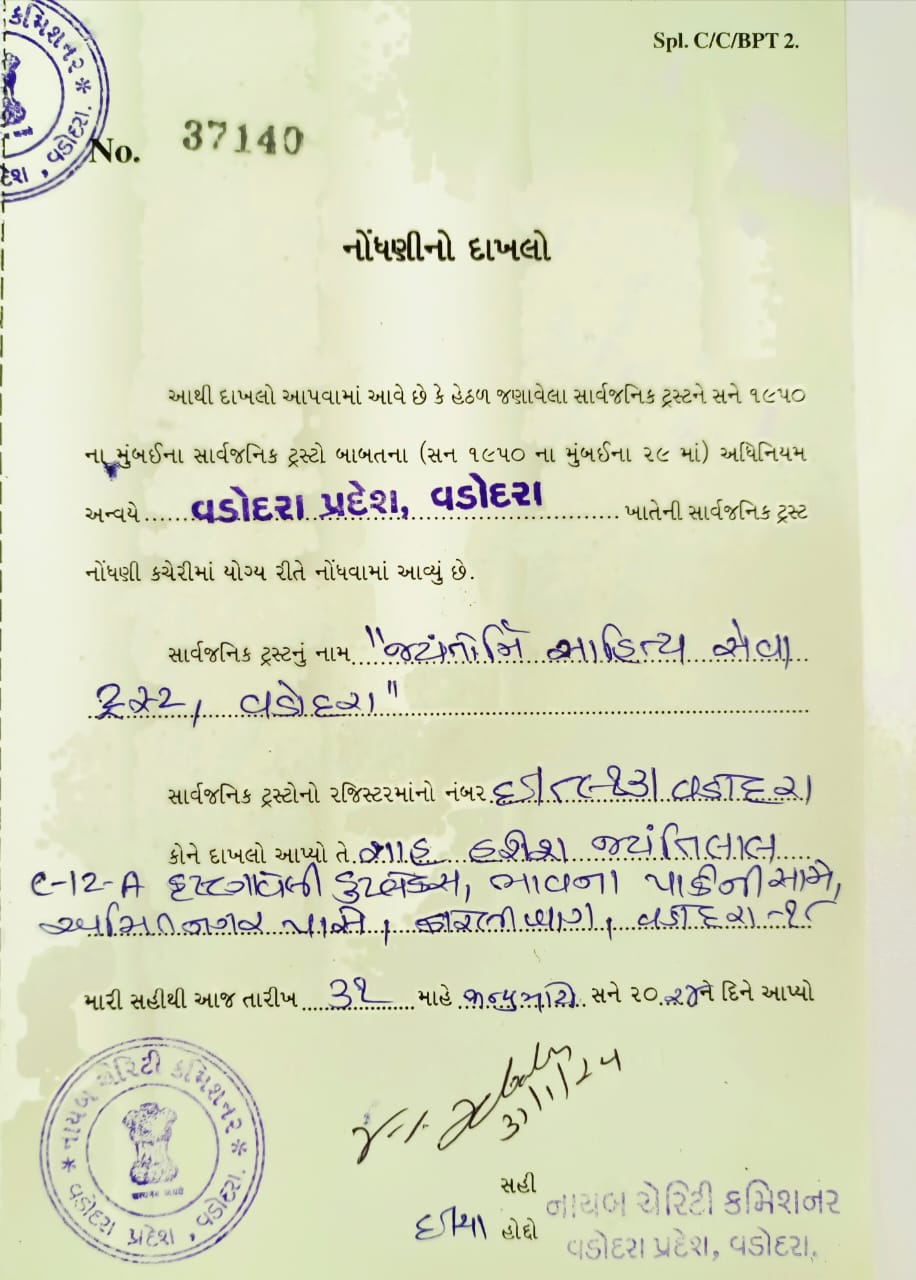 કમિશનર * વડોદરા.
Spl. C/C/BPT 2.
No. 37140
નોંધણીનો દાખલો
આથી દાખલો આપવામાં આવે છે કે હેઠળ જણાવેલા સાર્વજનિક ટ્રસ્ટને સને ૧૯૫૦
ના મુંબઈના સાર્વજનિક ટ્રસ્ટો બાબતના (સન ૧૯૫૦ ના મુંબઈના ૨૯ માં) અધિનિયમ
અન્વયે વડોદરા પ્રદેશ, વડોદરા ખાતેની સાર્વજનિક ટ્રસ્ટ
નોંધણી કચેરીમાં યોગ્ય રીતે નોંધવામાં આવ્યું છે.
સાર્વજનિક ટ્રસ્ટનું નામ "જયંતોર્મિ સાહિત્ય સેવા
ટ્રસ્ટ, વડોદરા"
સાર્વજનિક ટ્રસ્ટોનો રજિસ્ટરમાંનો નંબર વડોદરા
કોને દાખલો આપ્યો તે શાહ હર્ષેશ જયંતિલાલ
C-12-A ડુપ્લેક્સ, ભાવના પાર્કની સામે,
અમિતનગર પાસે, કારેલીબાગ, વડોદરા-૧૮
મારી સહીથી આજ તારીખ ૩૧ માહે જાન્યુઆરી સને ૨૦૨૪ને દિને આપ્યો
31/1/24
સહી
હોદ્દો
નાયબ ચેરિટી કમિશનર
વડોદરા પ્રદેશ, વડોદરા.
* નાયબ ચેરિટી કમિશનર * વડોદરા પ્રદેશ, વડોદરા.